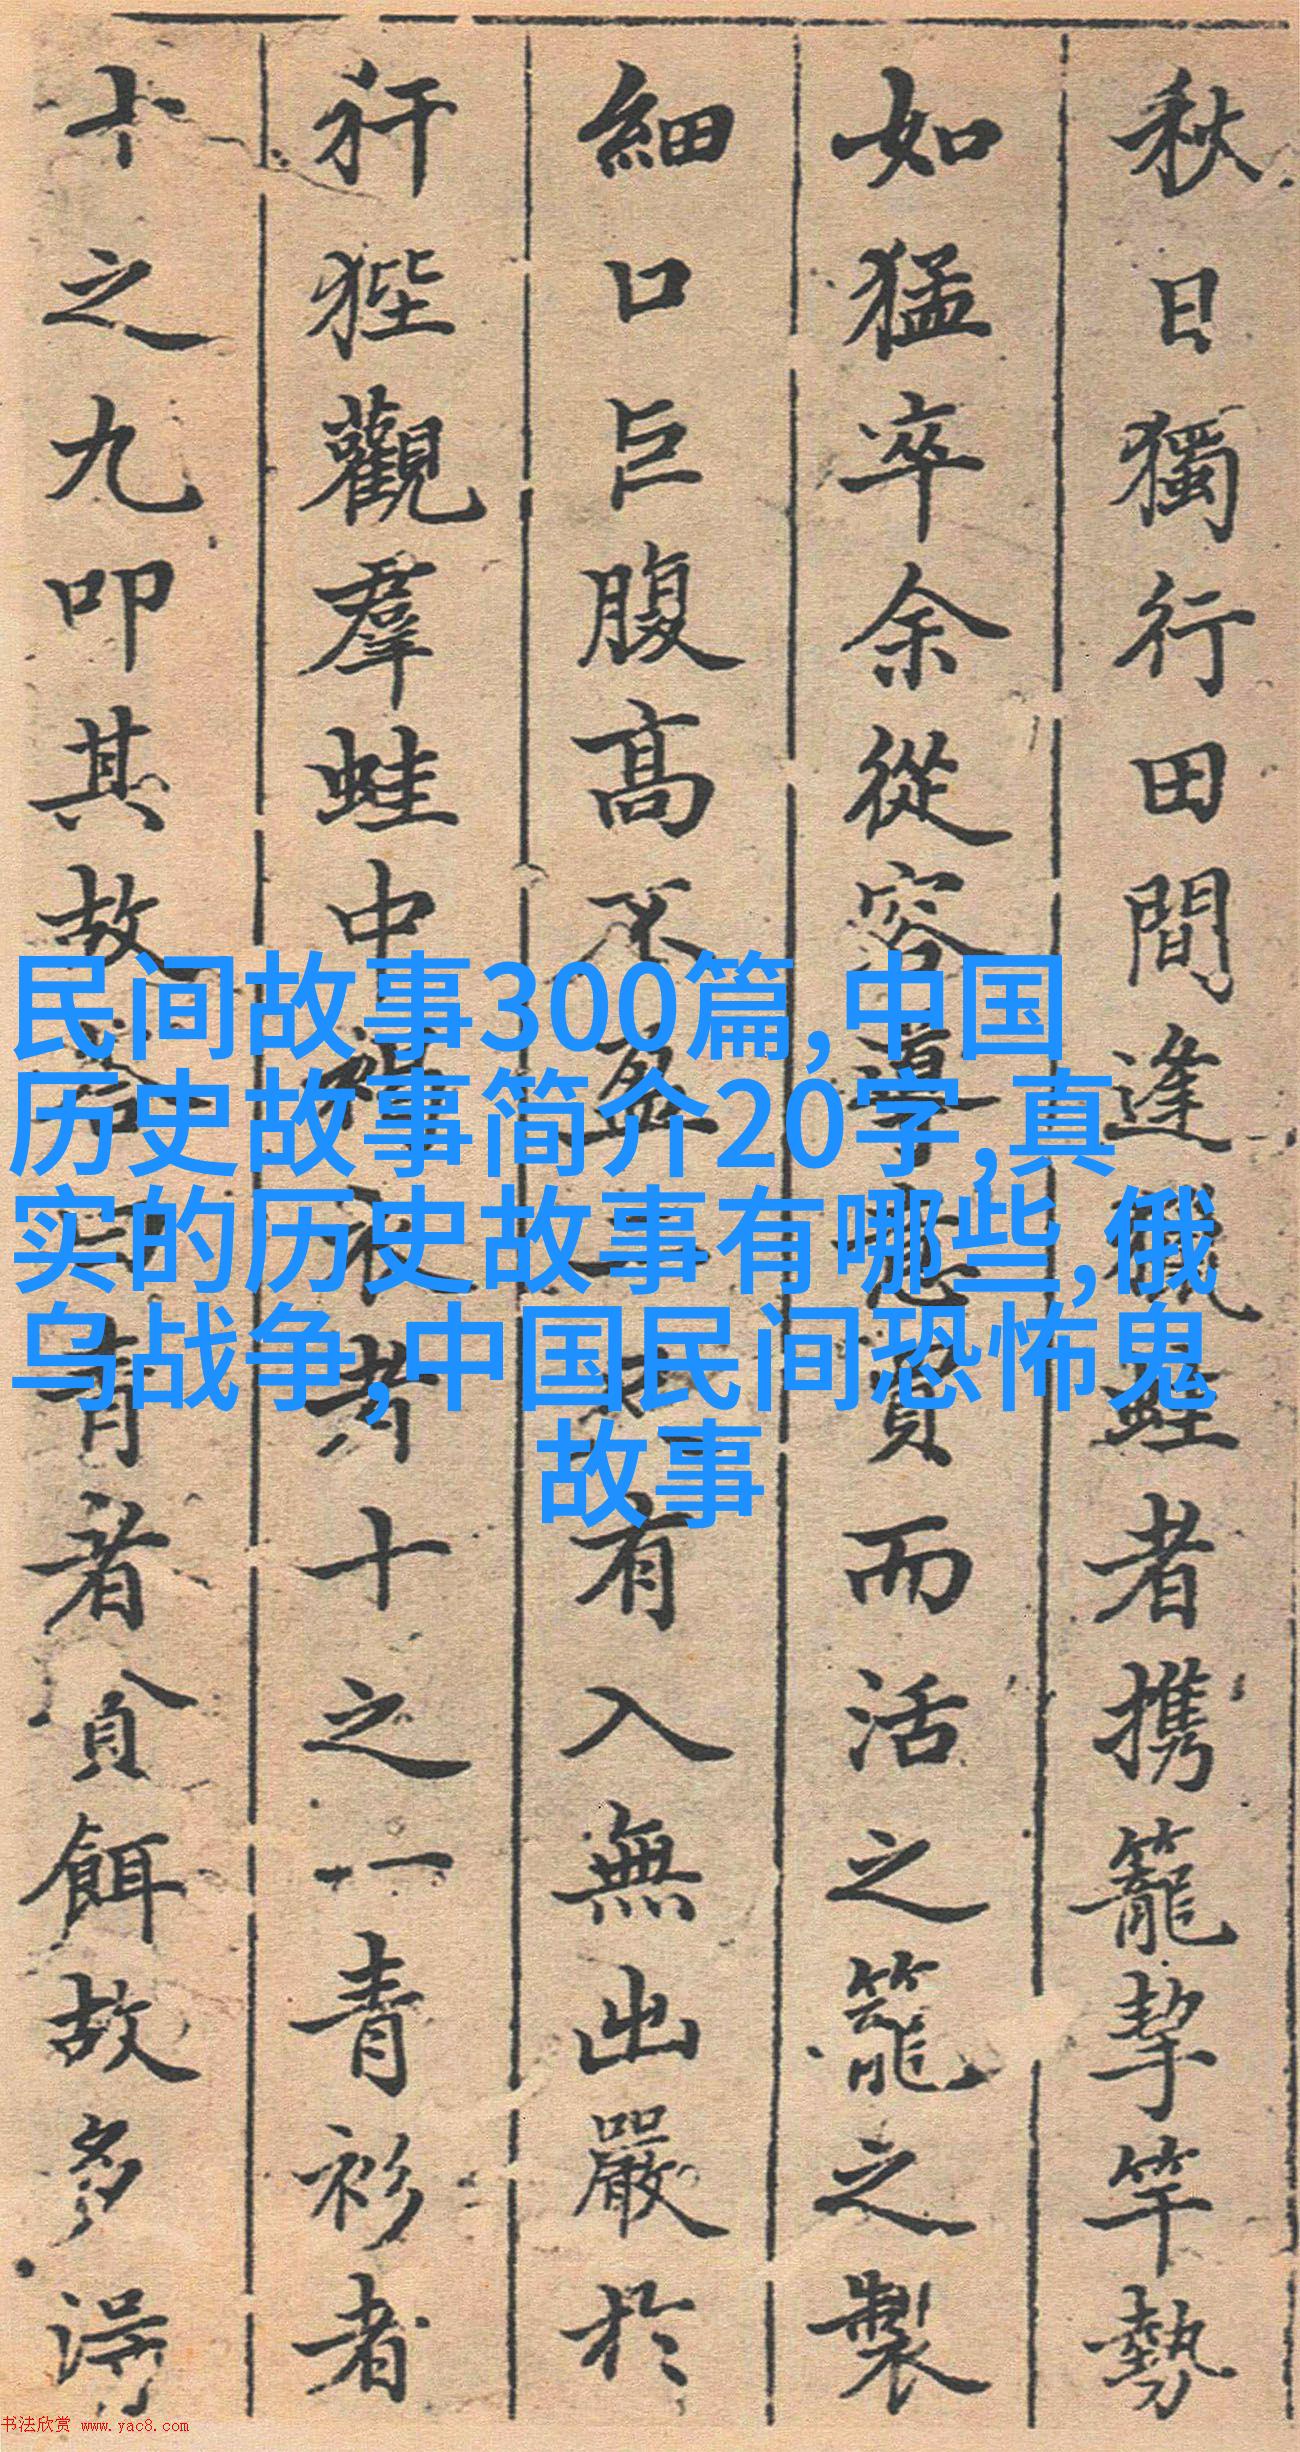 秋日獨行田間逢蛙者携籠挈竿勢
如猛卒余從容導買而活之籠之製
細口巨腹高不盈有入無出嚴於
犴狴觀羣蛙中褐衣者十之一青衫者
十之九叩其故答曰青者貪餌故多得
民间故事300篇,中国
历史故事简介20字,真
实的历史故事有哪些,俄
乌战争,中国民间恐怖鬼
故事
书法欣赏 www.yac8.com